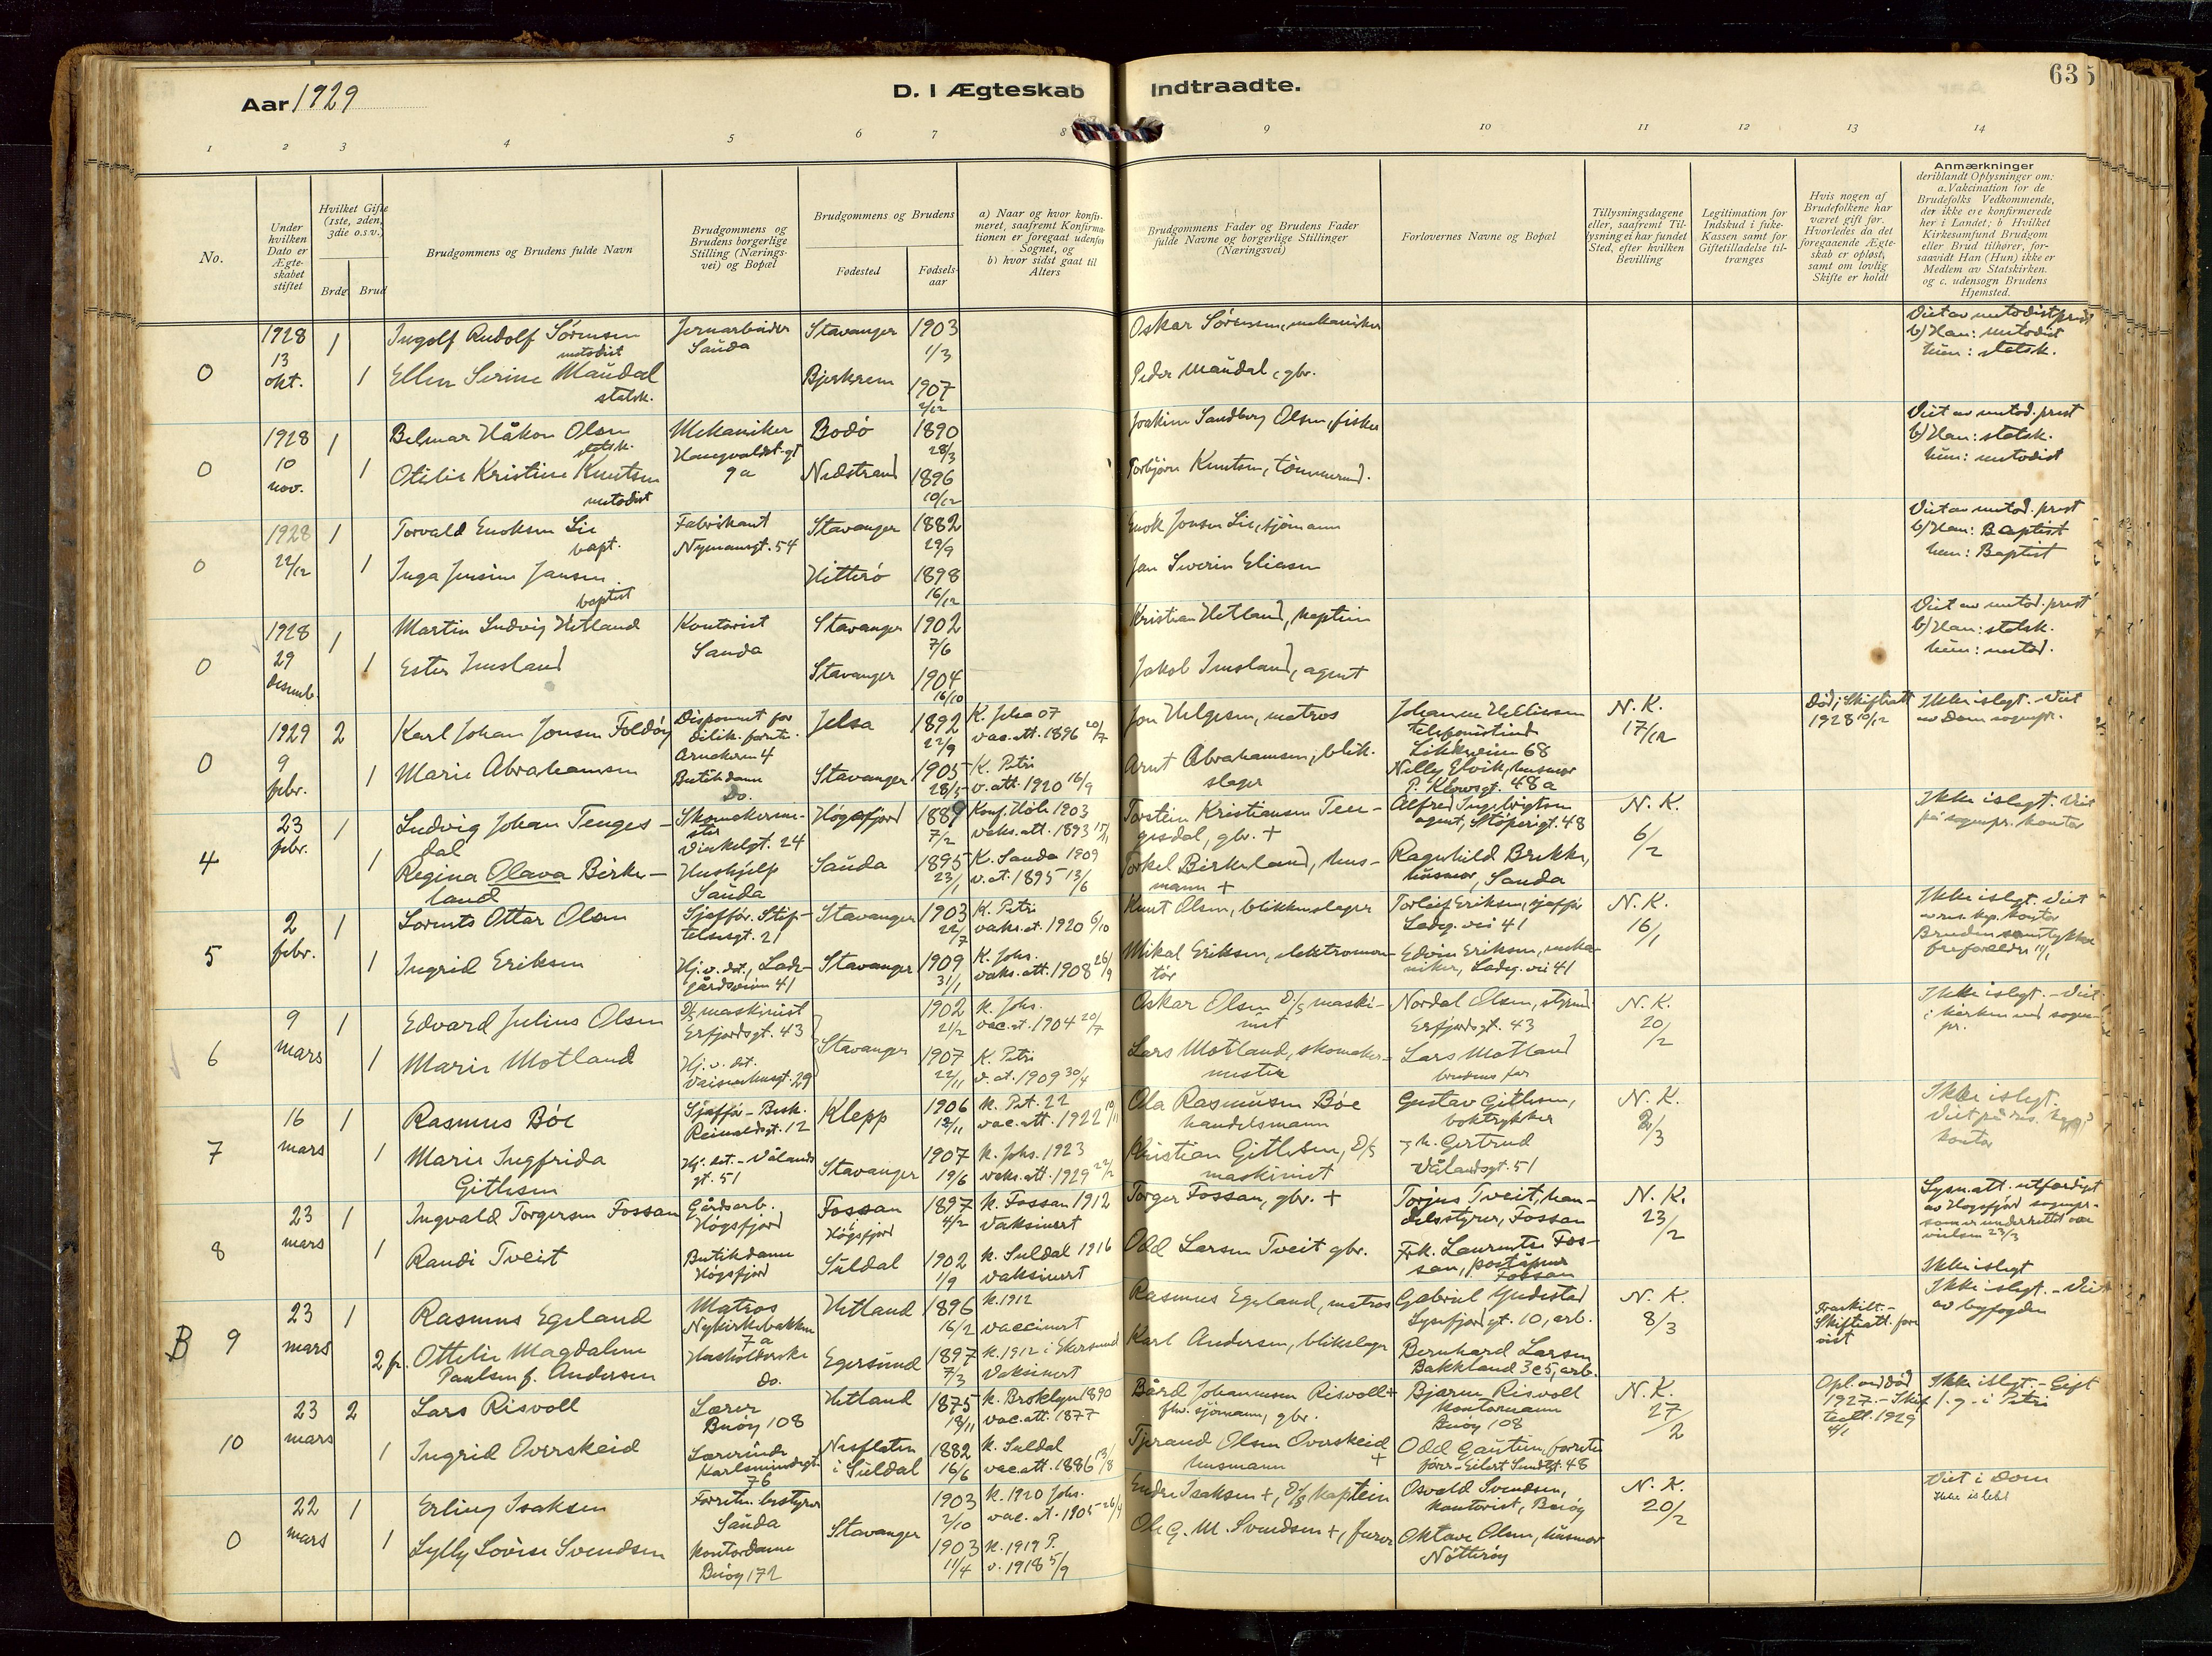 Aar 1929
D. I Ægteskab Indtraadte.
63 5
1 2 3 4 5 6 7 8 9 10 11 12 13 14
No.
Under hvilken Dato er Ægteskabet stiftet
Hvilket Gifte (1ste, 2den, 3die o.s.v.)
Brdg. Brud
Brudgommens og Brudens fulde Navn
Brudgommens og Brudens borgerlige Stilling (Næringsvei) og Bopæl
Brudgommens og Brudens
Fødested
Fødselsaar
a) Naar og hvor konfirmeret, saafremt Konfirmationen er foregaat udenfor Sognet, og
b) hvor sidst gaat til Alters
Brudgommens Fader og Brudens Fader fulde Navne og borgerlige Stillinger (Næringsvei)
Forlovernes Navne og Bopæl
Tillysningsdagene eller, saafremt Tillysning ei har fundet Sted, efter hvilken Bevilling
Legitimation for Indskud i fuke-Kassen samt for Giftetilladelse tiltrænges
Hvis nogen af Brudefolkene har været gift før. Hvorledes da det foregaaende Ægteskab er opløst, samt om lovlig Skifte er holdt
Anmærkninger
deriblandt Oplysninger om: a. Vakcination for de Brudefolks Vedkommende, der ikke ere konfirmerede her i Landet; b Hvilket Kirkesamfund Brudgom eller Brud tilhører, forsaavidt Han (Hun) ikke er Medlem av Statskirken. og c. udensogn Brudens Hjemsted.
0 1928 13 okt. 1 Ingolf Rudolf Sörensen metodist Jernarbeider Sauda Stavanger 1903 1/3 Oskar Sörensen, mekaniker Viet av metodistprest b) Han: metodist hun: statsk.
1 Ellen Serine Maudal statsk. Bjerkrem 1907 2/12 Peder Maudal, gbr.
0 1928 10 nov. 1 Håkon Olsen statsk. Mekaniker 9a Bodö 1890 28/3 Joakim Sandberg Olsen, fisker Viet av metod. prest b) Han: statsk. hun: metodist
1 Otilie Kristine Knutsen metodist Nedstrand 1896 10/12 Torbjörn Knutsen, tömmermd.
0 1928 22/12 1 Torvald Enoksen Lie bapt. Fabrikant Nymansgt. 54 Stavanger 1882 29/9 Enok Jonsen Lie, sjömann Viet av metod. prest b) Han: Baptist hun: Baptist
1 Inga Jensine Jansen baptist Hitterö 1898 16/12 Jan Severin Eliasen
0 1928 29 desemb. 1 Martin Ludvig Hetland Kontorist Sauda Stavanger 1902 7/6 Kristian Hetland, kaptein Viet av metod. prest b) Han: statsk. hun: metod.
1 Ester Imsland Stavanger 1904 16/10 Jakob Imsland, agent
0 1929 9 febr. 2 Karl Johan Jonsen Foldöy Disponent for Arneheim 4 Jelsa 1892 22/9 K. Jelsa 07 vac. att. 1896 20/7 Jon Helgesen, matros Johanne telefonistinde 68 N. K. 17/12 Död; Skifteatt 1928 10/12 Ikke islegt. Viet av Dom sognepr.
1 Marie Abrahamsen Butikdame Do. Stavanger 1905 28/5 K. Petri v. att. 1920 16/9 Arnt Abrahamsen, blikslager Nelly Elvik, husmor P. Klowsgt. 48a
4 23 febr. 1 Ludvig Johan Tengesdal Skomakermester Vinkelgt. 24 Högsfjord 1889 7/2 Konf. Höle 1903 vaks. att. 1893 Torstein Kristiansen Tengesdal, gbr. + Alfred Ingebrigtsen agent, Stöperigt. 48 N. K. 6/2 Ikke islegt. Viet på sognepr. kontor
1 Regina Olava Birkeland Hushjelp Sauda Sauda 1895 23/1 K. Sauda 1909 v. at. 1895 13/6 Torkel Birkeland, husmann + Ragnhild Brekke, husmor, Sauda
5 2 febr. 1 Lorents Ottar Olsen Sjafför. Stiftelsesgt. 21 Stavanger 1903 22/7 K. Petri vaks. at. 1920 6/10 Knut Olsen, blikkenslager Torleif Eriksen, sjafför Ladeg. vei 41 N. K. 16/1 Ikke islegt. Viet av res. kap. kontor
1 Ingrid Eriksen Hj. v. det., Ladegårdsveien 41 Stavanger 1909 31/1 K. Johs. vaks. att. 1908 26/9 Mikal Eriksen, elektromontör Edvin Eriksen, mekaniker, Ladeg. vei 41
6 9 mars 1 Edvard Julius Olsen D/s maskinist Erfjordsgt. 43 Stavanger 1902 21/2 K. Johs. vac. at. 1904 20/7 Oskar Olsen D/s maskinist Nordal Olsen, styrmd. Erfjordsgt. 43 N. K. 20/2 Ikke islegt. - Viet i kirken ved sognepr.
1 Marie Motland Hj. v. det. Vaisenhusgt. 29 1907 22/11 K. Petri v. at. 1909 30/4 Lars Motland, skomakermester Lars Motland brudens far
7 16 mars 1 Rasmus Böe Sjafför - Bisk. Reinaldsgt. 12 Klepp 1906 12/11 K. Pet. 22 vac. att. 1922 10/11 Ola Rasmussen Böe handelsmann Gustav Gitlesen, boktrykker N. K. 2/3 Ikke islegt.
1 Marie Ingfrida Gitlesen Hj. det. - Vålandsgt. 51 Stavanger 1907 19/6 K. Johs. 1923 vaks. att. 1929 22/2 Kristian Gitlesen, D/s maskinist Gertrud Vålandsgt. 51
8 23 mars 1 Ingvald Torgersen Fossan Gårdsarb. Högsfjord Fossan Högsfjord 1897 4/2 K. Fossan 1912 Vaksinert Torger Fossan, gbr. + Torjus Tveit, handelsstyrer, Fossan N. K. 23/2 Lysn.att. utferdiget av Högsfjord sognepr. som er underrettet om vielsen 23/3
1 Randi Tveit Butikdame Högsfjord Suldal 1902 1/9 K. Suldal 1916 vaksinert Odd Larsen Tveit gbr. Frk. Laurentse Fossan, poståpner Fossan Ikke islegt
B 9 23 mars 1 Rasmus Egeland Matros Nykirkebakken 7a Hetland 1896 16/2 K. 1912 vaccinert Rasmus Egeland, matros Gabriel Lysefjordgt. 10, arb. N. K. 8/3 Fraskilt. - Skifteatt. forevist Ikke islegt. - Viet av byfogden
2 fr. Ottilie Magdalene Paulsen f. Andersen Do. Egersund 1897 7/3 K. 1912 i Ekersund Vaksinert Karl Andersen, blikslager Bernhard Larsen Bakkland 3e5, arb.
10 23 mars 2 Lars Risvoll Lærer Buöy 108 Hetland 1875 18/11 K. Broklyn 1890 vac. att. 1877 Bård Johannesen Risvoll + fhv. sjömann, gbr. Bjarne Risvoll kontormann Buöy 108 N. K. 27/2 Opl. om död 1927. - Skifteatt. 1929 4/1 Ikke islegt. - Gift 1. g. i Petri
1 Ingrid Overskeid Lærerinde Karlsminnegt. 76 Nesflaten i Suldal 1882 16/6 K. Suldal vac. att. 1886 13/8 Tjerand Olsen Overskeid husmann + Odd Eilert Sundtgt. 48
0 22 mars 1 Erling Isaksen Forretn. bestyrer Sauda Stavanger 1903 2/10 K. 1920 Johs. vac. at. 1905 26/4 Endre Isaksen +, D/s kaptein Osvald Svendsen, kontorist, Buöy N. K. 20/2 Viet i Dom Ikke islebt
1 Lylly Lovise Svendsen Kontordame Buöy 172 1903 11/4 K. 1919 P. v. 1918 5/9 Ole G. M. Svendsen +, Oktave Olsen, husmor Nötteröy